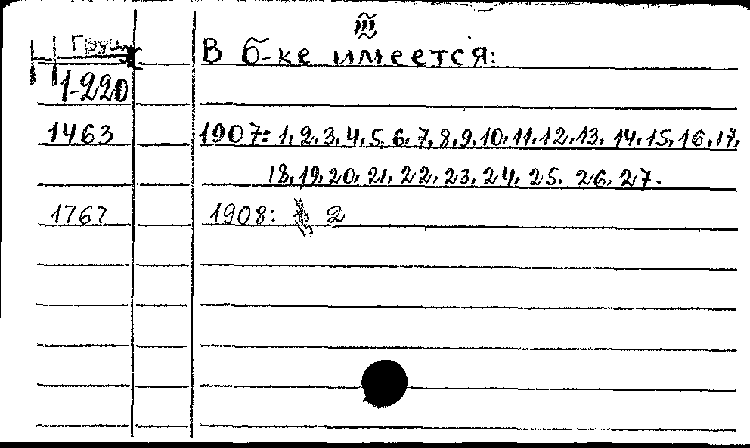 III
Груз
В б-ке имеется:
1-220
1463 1907: 1, 2, 3, 4, 5, 6, 7, 8, 9, 10, 11, 12, 13, 14, 15, 16, 17,
18, 19, 20, 21, 22, 23, 24, 25, 26, 27.
1767 1908: 2